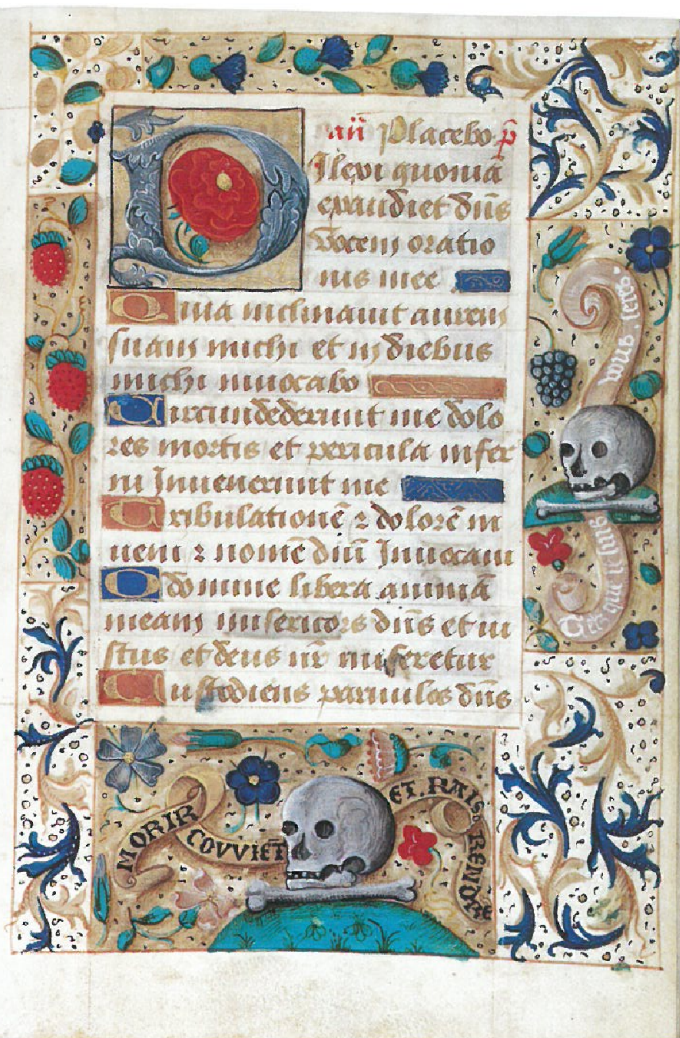 añ Placebo p̄
Dilexi quoniã
exaudiet dñs
vocem oratio
nis mee
Quia inclinauit aurem
suam michi et in diebus
michi inuocabo
Circundederunt me dolo
res mortis et pericula infer
ni Inuenerunt me
Tribulationẽ ⁊ dolorẽ in
ueni ⁊ nomẽ dñi Inuocaui
O domine libera animã
meam misericors dñs et iu
stus et deus nr̃ miseretur
Custodiens paruulos dñs
vous seres
que ie suis
MORIR
COVVIET
ET RAISO